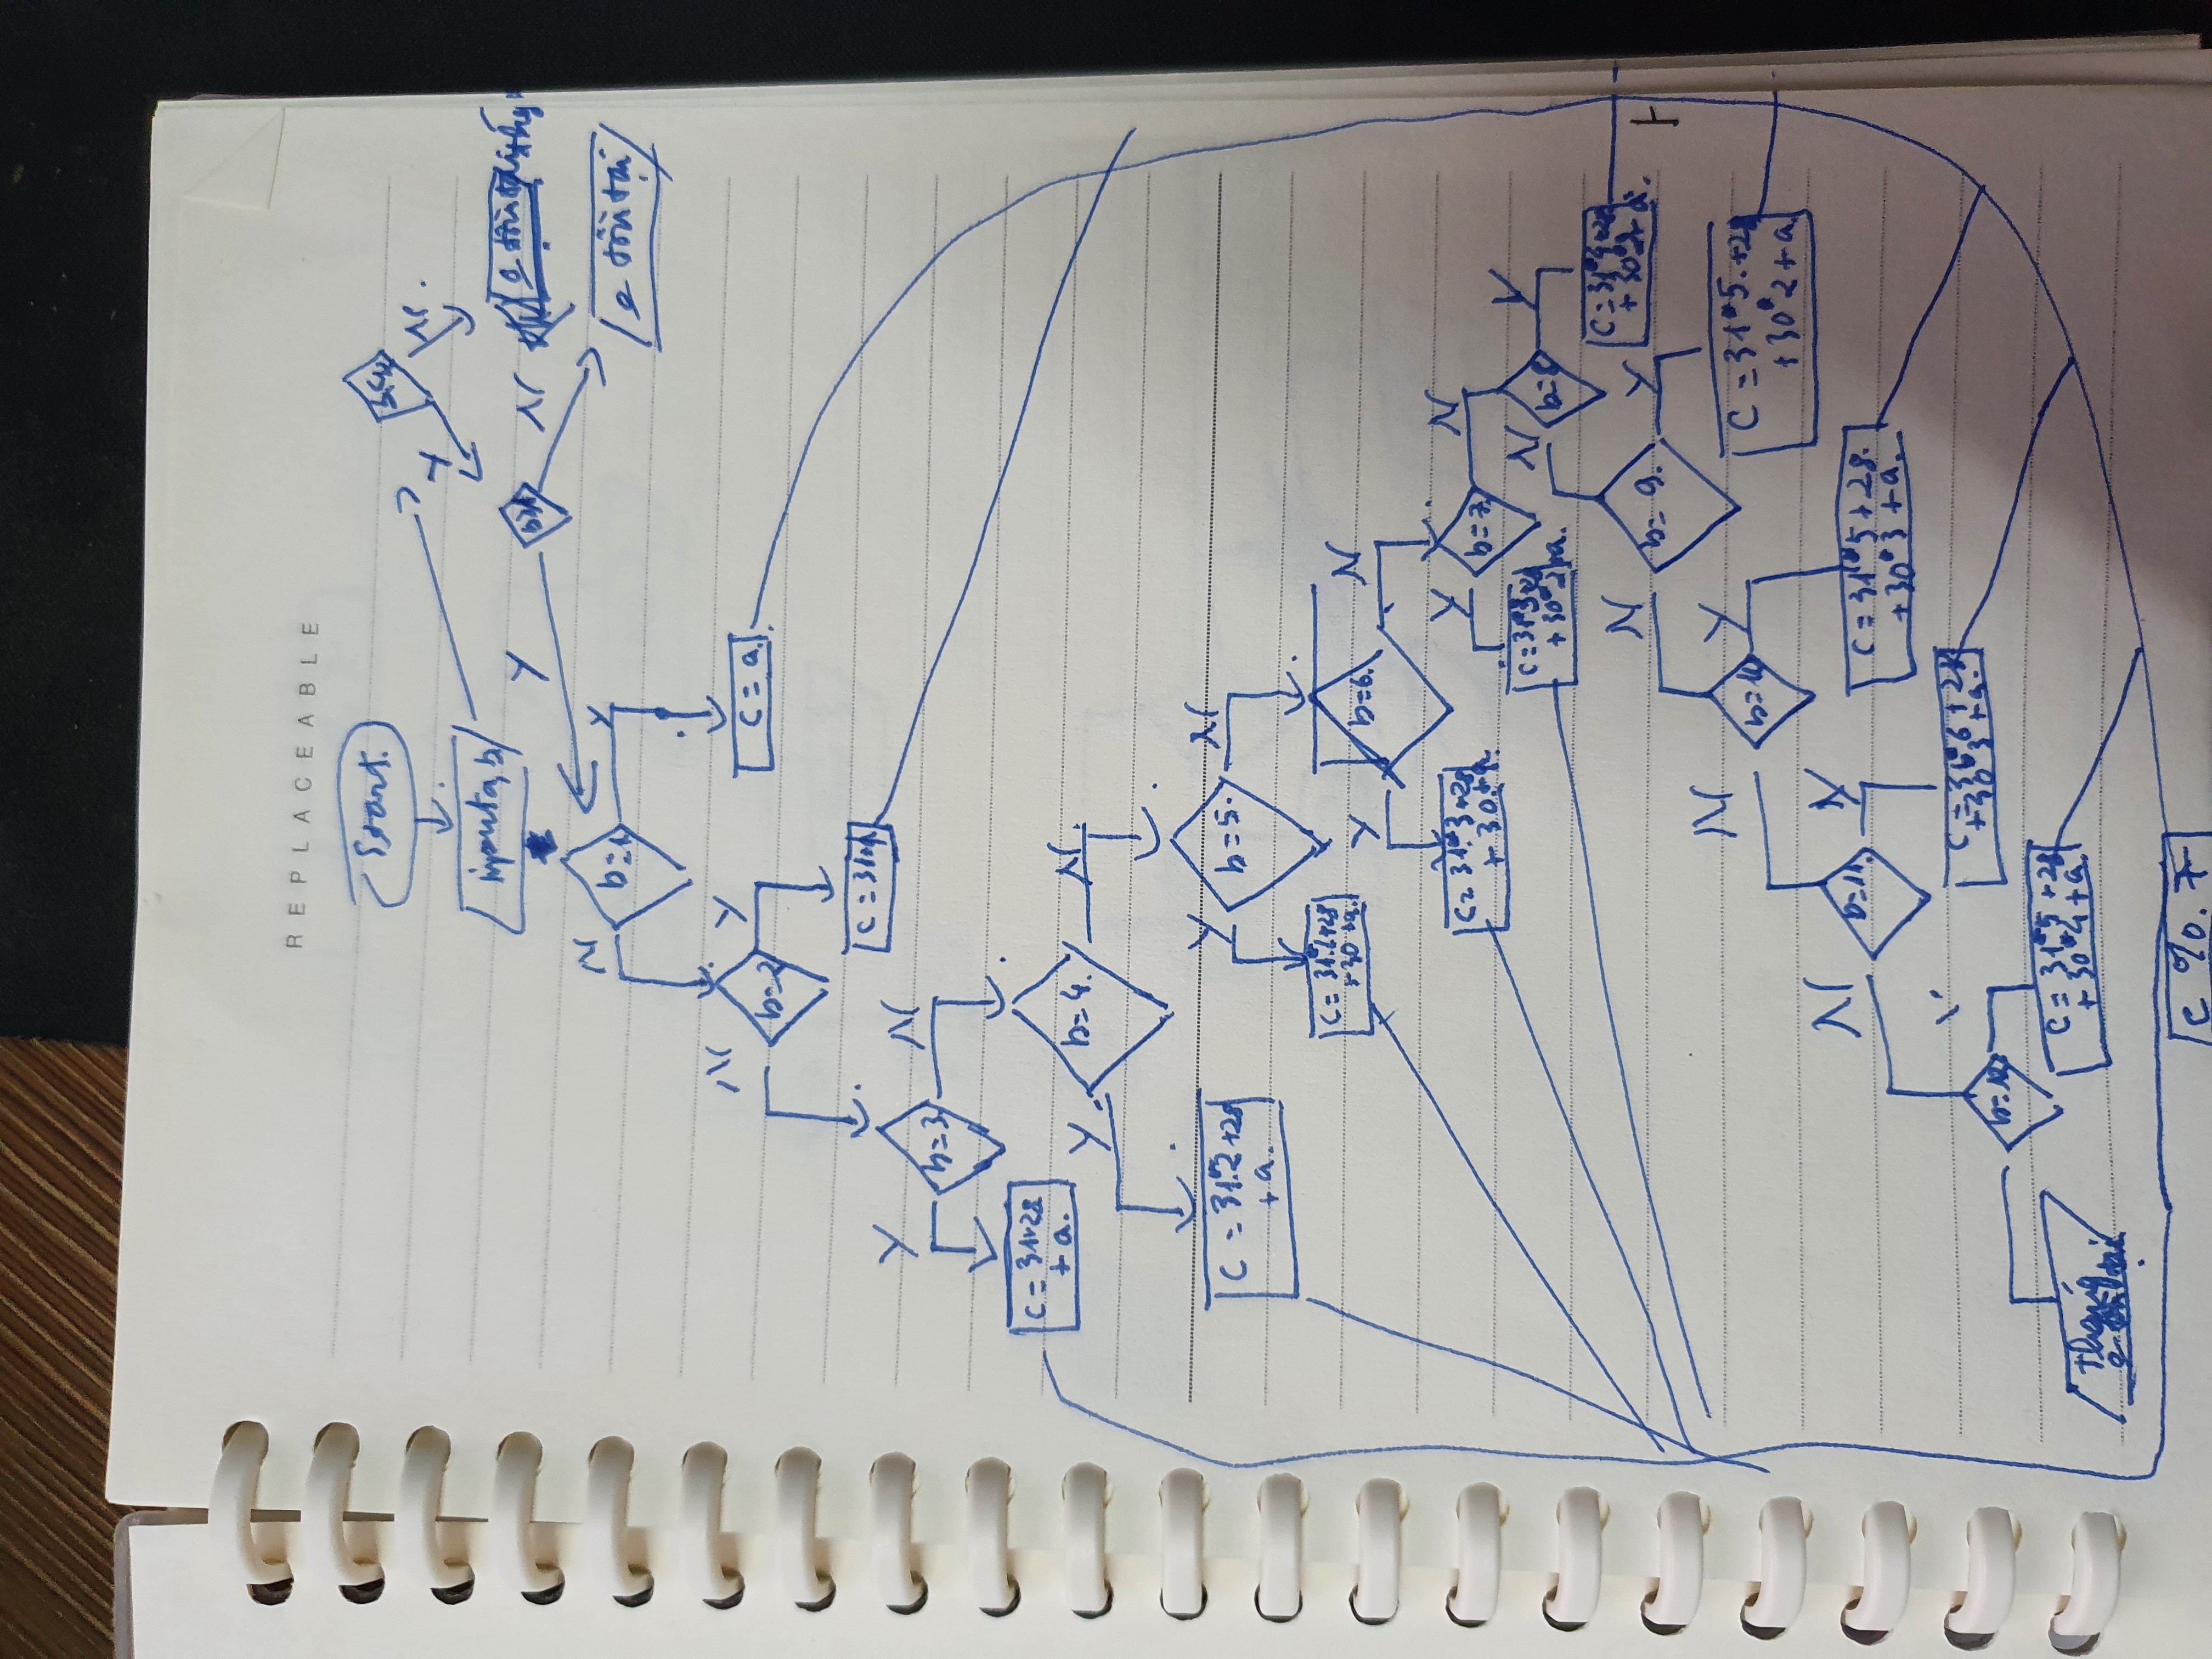 REPLACEABLE
Start.
input a, b
Y
N.
Y
N
tồn tại
N
b=1
Y
N
Y
b=2
C = a.
C = 31+a
Y
b=3.
N
C = 31+28
+ a.
Y
b=4.
N.
C = 31*2+28
+ a.
Y
b=5.
N
C = 31*2+28
+30 +a.
Y
b=6.
N
C= 31*3+28
+ 30.+a.
Y
b=7.
N
C=31*3+28
+30*2+a.
N
b=8
Y
C=31*4+28
+30*2+a.
N
b= 9.
Y
C = 31*5.+28
+30*2+a
N
b=10
Y
C = 31*5+28.
+30*3 +a.
N
b=11.
Y
C = 31*6+28
+30*3 +a.
b=12
C = 31*5+28
+30*4+a.
tháng
tồn tại
C %. 7